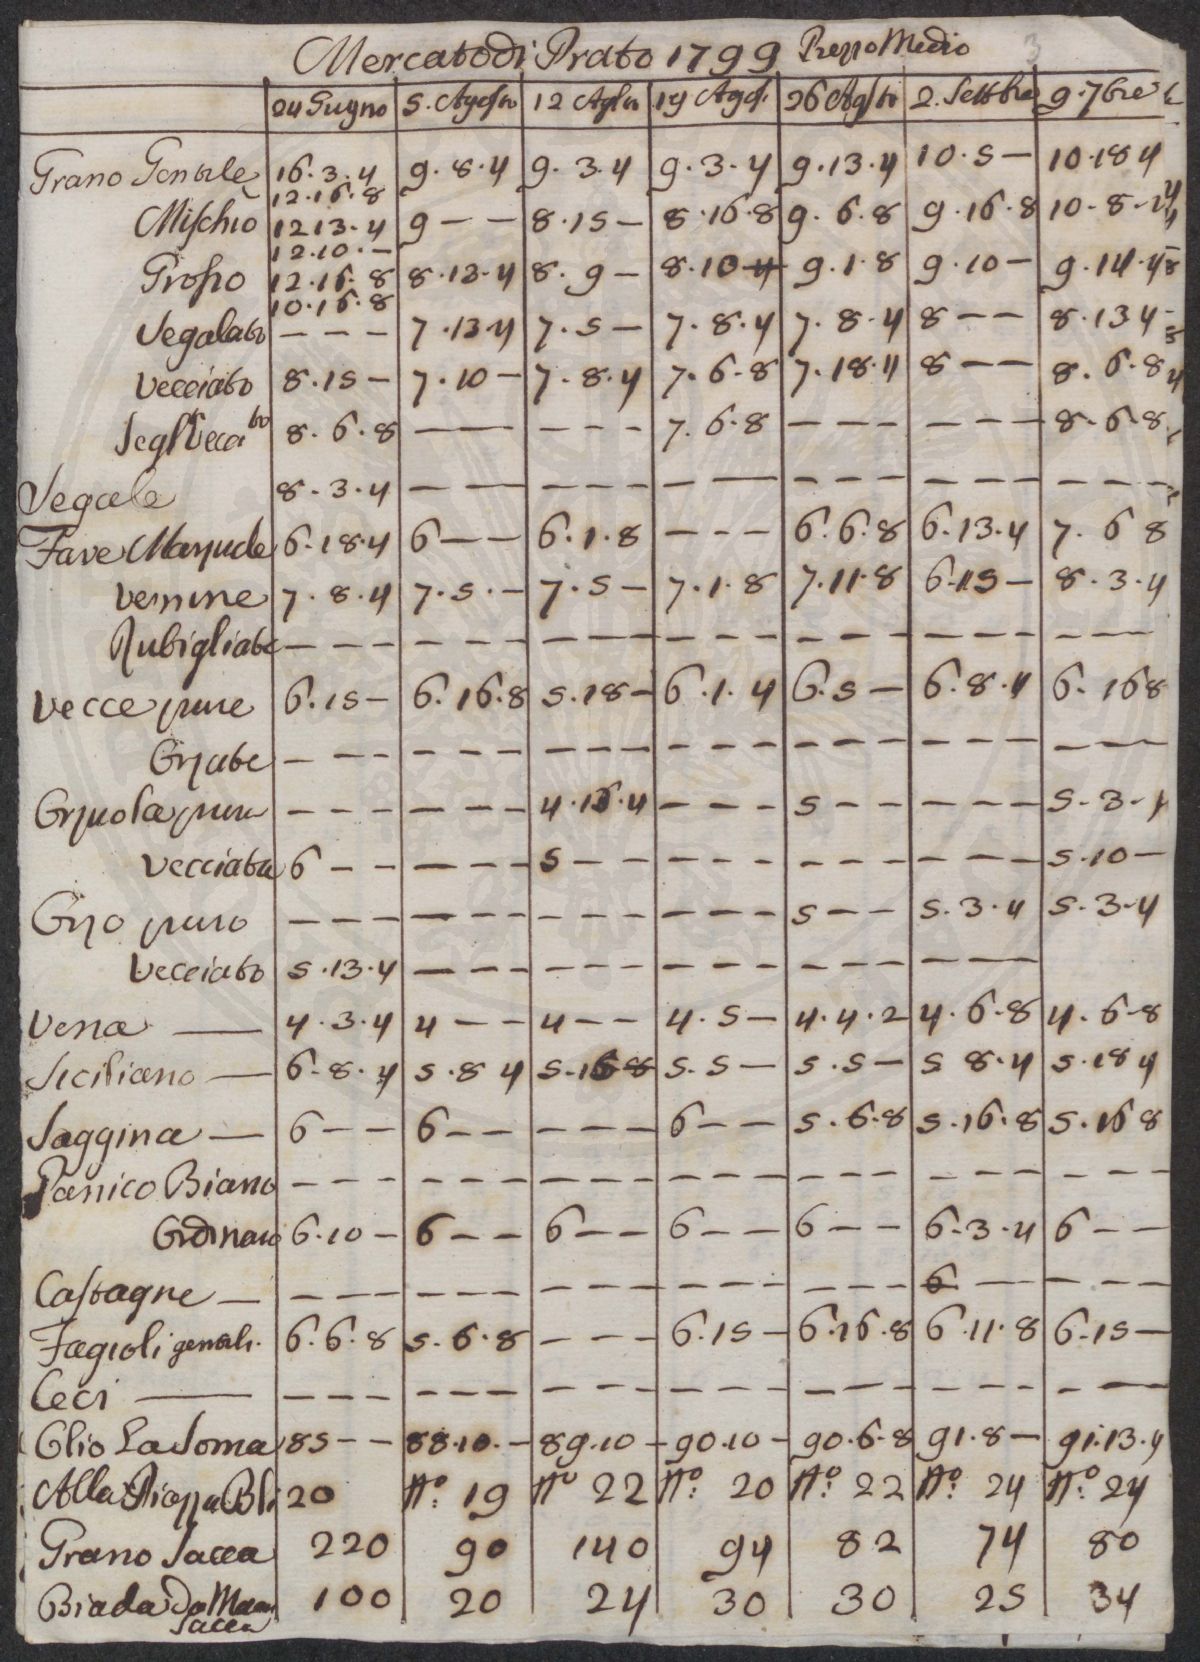 Mercato di Prato 1799 Prezzo Medio
3
24 Giugno 5. Agosto 12 Agsto 19 Agst. 26 Agsto 2. Settbre 9. 7bre
Grano Gentile 16.3.4 9.8.4 9.3.4 9.3.4 9.13.4 10.5— 10.18 4
12.16.8
Mischio 12 13.4 9 — — 8.15 — 8.16.8 9.6.8 9.16.8 10-8-
12.10.—
Grosso 12.16.8 8.13.4 8.9 — 8.10 9.1.8 9.10— 9.14.4
10.16.8
Segalato — — — 7.13.4 7.5— 7.8.4 7.8.4 8 — — 8.13 4
Vecciato 8.15— 7.10— 7.8.4 7.6.8 7.18.4 8 — — 8.6.8
Segl Vecc to 8.6.8 — — — — — 7.6.8 — — — — — — 8-6-8
Segale 8.3.4 — — — — — — — — — — — — — — — —
Fave Marzuole 6.18.4 6 — — 6.1.8 — — — 6.6.8 6.13.4 7.6 8
Vernine 7.8.4 7.5.— 7.5— 7.1.8 7.11.8 6.15— 8.3.4
Rubigliate — — — — — — — — — — — — — — — — — — — —
Vecce pure 6.15— 6.16.8 5.18— 6.1.4 6.5— 6.8.4 6.16 8
Orzate — — — — — — — — — — — — — — — — — — — — —
Orzuola pura — — — — — — 4.13.4 — — — 5 — — — — — 5.3-4
Vecciata 6 — — — — — 5 — — — — — — — — — — — 5.10—
Orzo puro — — — — — — — — — — — — 5 — — 5.3.4 5.3.4
Vecciato 5.13.4 — — — — — — — — — — — — — — —
Vena — 4.3.4 4 — — 4 — — 4.5— 4.4.2 4.6-8 4.6-8
Siciliano — 6-8.4 5.8 4 5.16 8 5.5— 5.5— 5 8.4 5.18 4
Saggina — 6 — — 6 — — — — — 6 — — 5.6.8 5.16.8 5.16 8
Panico Biano — — — — — — — — — — — — — — — — — — — — —
Ordinaro 6.10— 6 — — 6 — — 6 — — 6 — — 6.3.4 6 — —
Castagne — — — — — — — — — — — — — — — — 6 — — — —
Fagioli gentili. 6.6.8 5.6.8 — — — 6.15— 6.16.8 6.11.8 6.15—
Ceci — — — — — — — — — — — — — — — — — — — — —
Olio La Soma 85 — — 88.10.— 89.10— 90.10— 90.6-8 91.8— 91.13.4
Alla Piazza Bli 20 No. 19 No 22 No. 20 No. 22 No. 24 No. 24
Grano Sacca 220 90 140 94 82 74 80
Biada Da Sacca 100 20 24 30 30 25 34